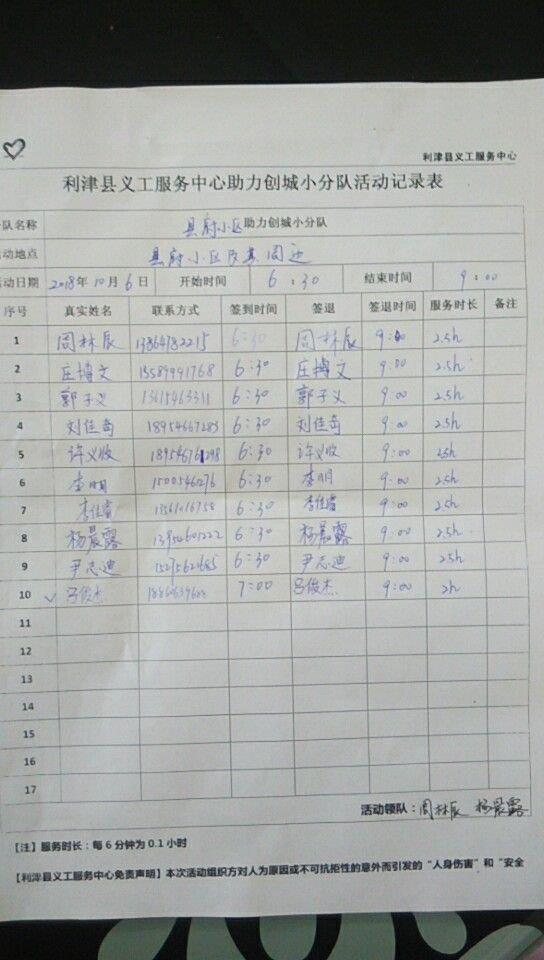 利津县义工服务中心
利津县义工服务中心助力创城小分队活动记录表
队名称 县府小区助力创城小分队
动地点 县府小区及其周边
动日期 2018年10月6日 开始时间 6:30 结束时间 9:00
序号 真实姓名 联系方式 签到时间 签退 签退时间 服务时长 备注
1 周林辰 13864782215 6:30 周林辰 9:00 2.5h
2 庄博文 15589991768 6:30 庄博文 9:00 2.5h
3 郭子义 13615463311 6:30 郭子义 9:00 2.5h
4 刘佳奇 18954667283 6:30 刘佳奇 9:00 2.5h
5 许义收 18954676298 6:30 许义收 9:00 2.5h
6 李明 1500546276 6:30 李明 9:00 2.5h
7 李佳睿 13561016758 6:30 李佳睿 9:00 2.5h
8 杨晨露 13952601222 6:30 杨晨露 9:00 2.5h
9 尹志迪 6:30 尹志迪 9:00 2.5h
10 吕俊杰 7:00 吕俊杰 9:00 2h
11
12
13
14
15
16
17
活动领队：周林辰 杨晨露
【注】服务时长：每6分钟为0.1小时
【利津县义工服务中心免责声明】本次活动组织方对人为原因或不可抗拒性的意外而引发的“人身伤害”和“安全